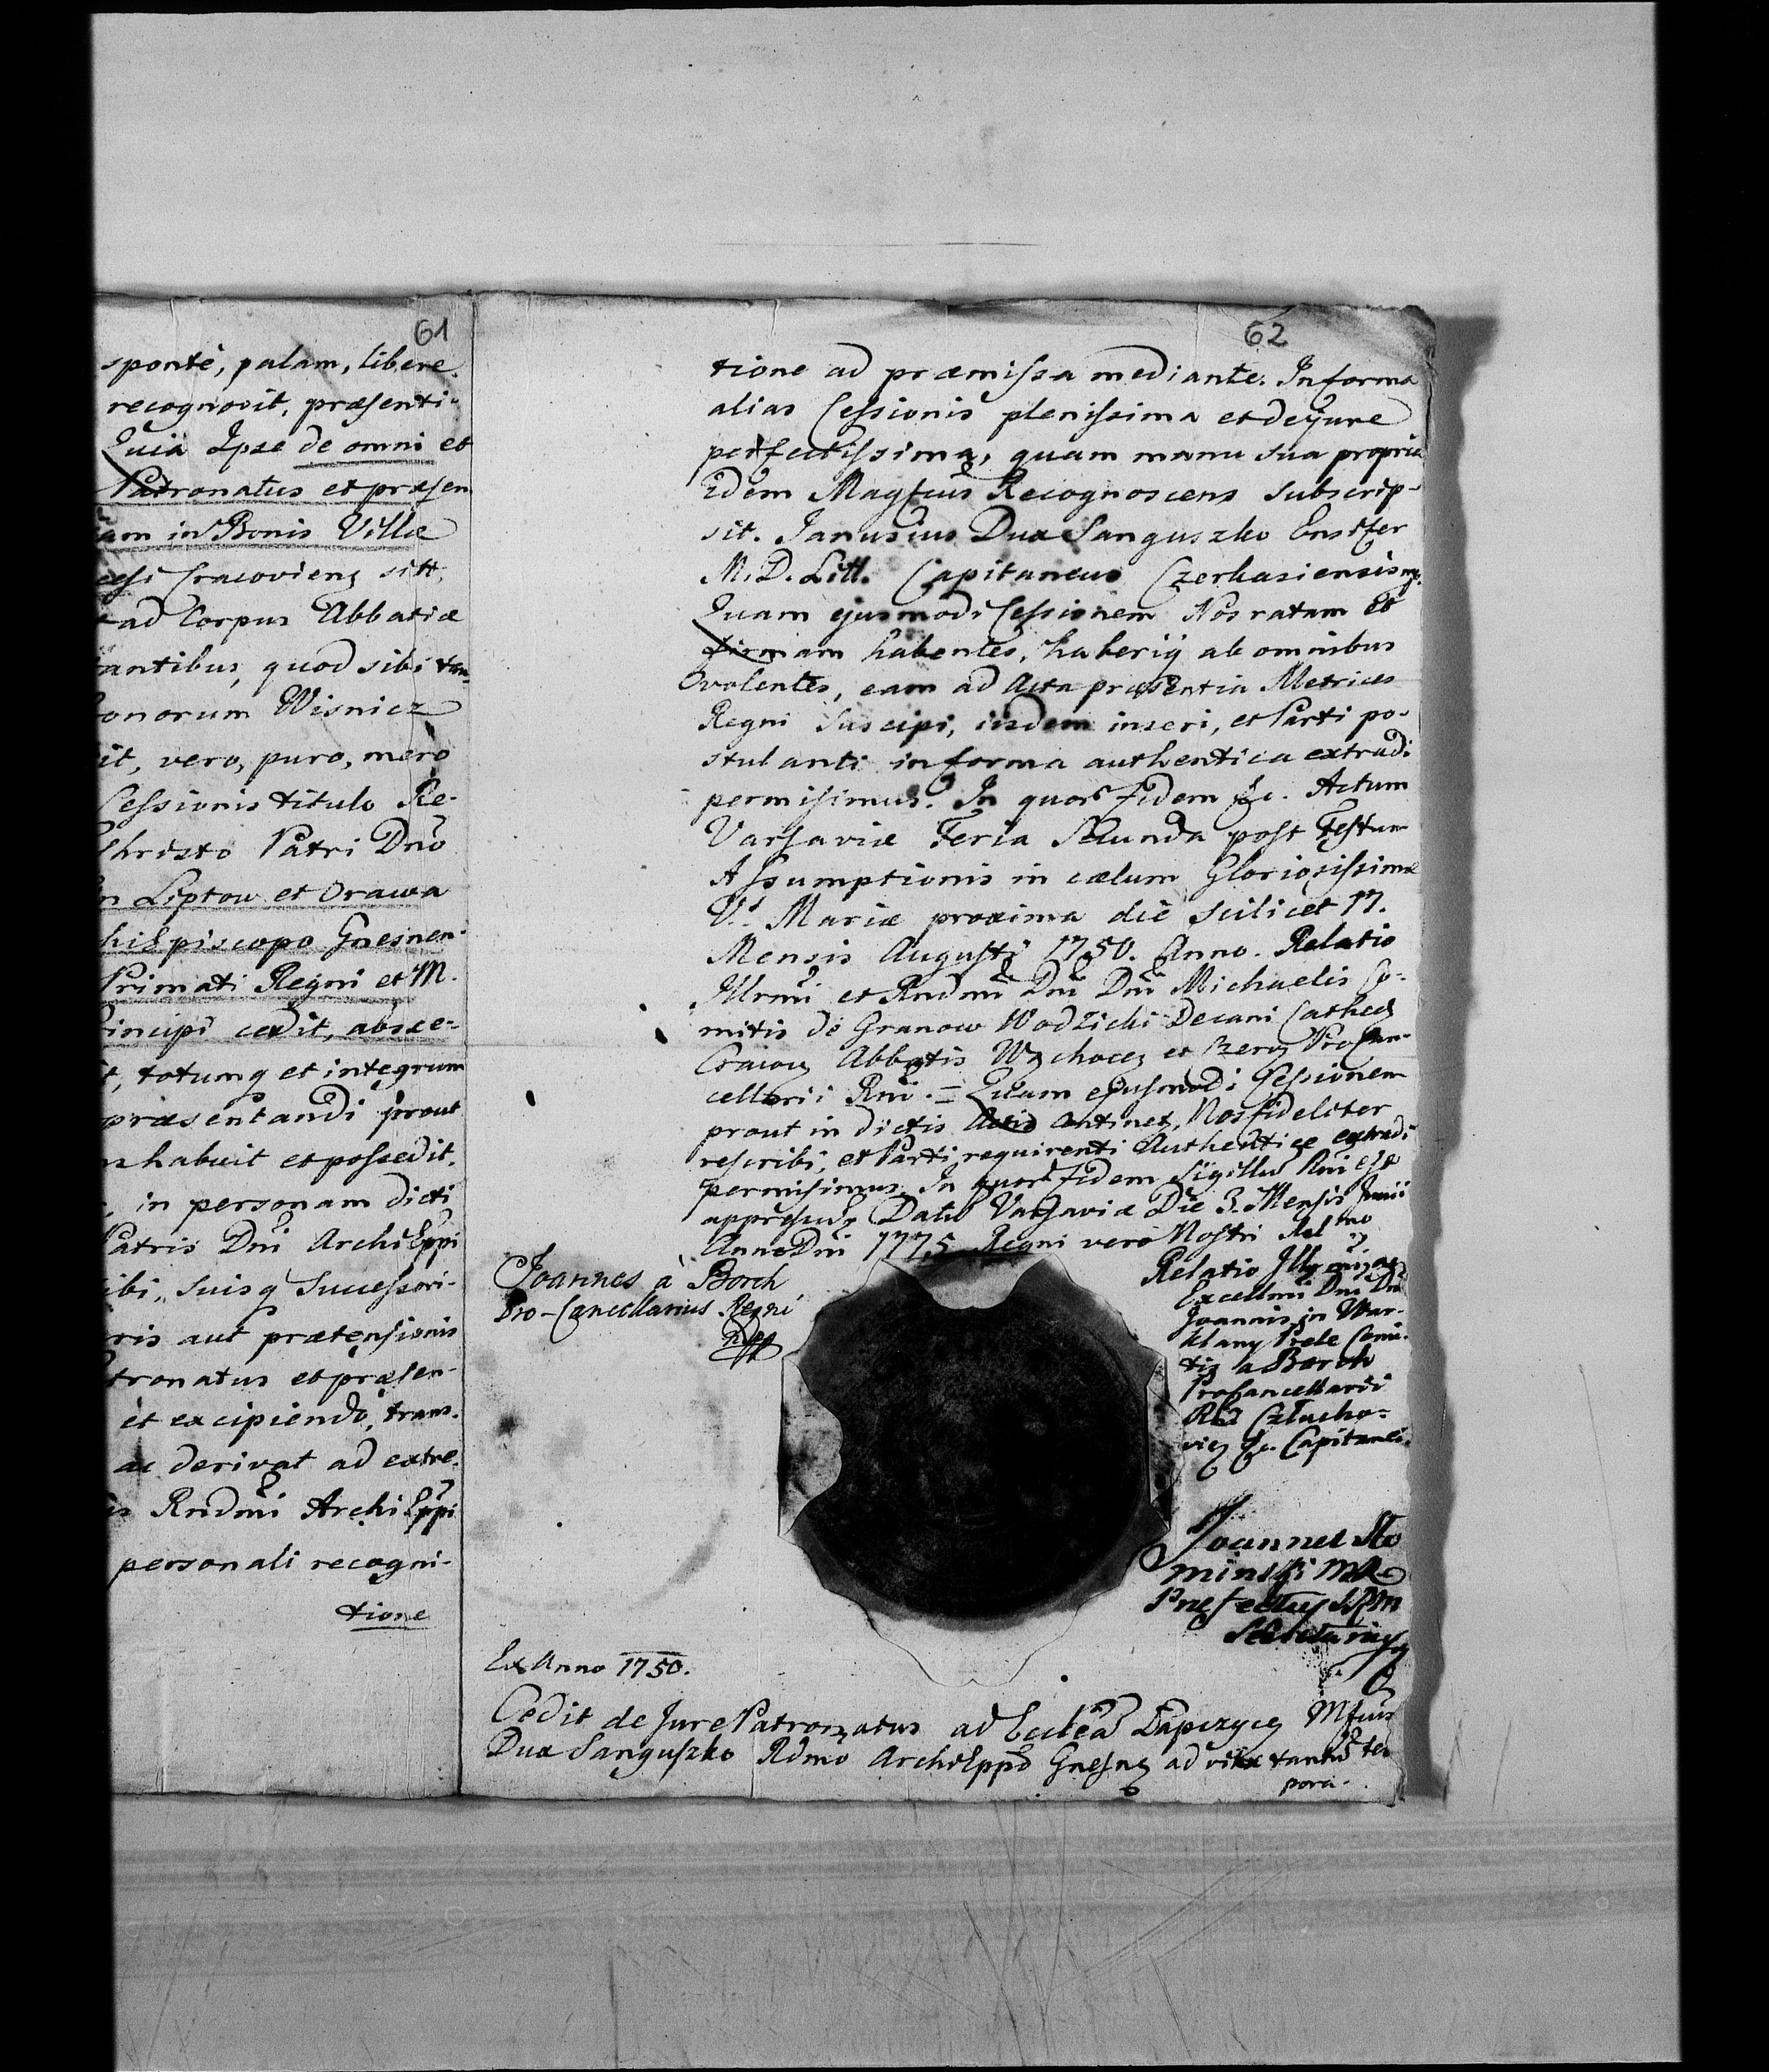 61
sponte, palam, libere.
recognovit, præsenti-
Quia Ipse de omni et
Patronatus et præsen
am in Bonis Villæ
cesi Cracovien sitt,
ad Corpus Abbatiæ
antibus, quod sibi tan-
onorum Wisnicz
it, vero, puro, mero
Cessionis titulo Re-
Christo Patri Dno
n Liptow et Orawa
hiEpiscopo Gnesnen-
Primati Regni et M.
incipi cedit, absce-
t, totumq et integrum
præsentandi prout
habuit et possedit.
, in personam dicti
Patris Dni ArchiEppi
ibi, suisq Successori-
ris aut prætensionis
tronatus et præsen-
et excipiendo, trans-
ac derivat ad extre-
is Rndmi ArchiEppi
personali recogni-
tione
62
tione ad præmissa mediante. In forma
alias Cessionis plenissima et de jure
perfectissima, quam manu sua propria
idem Magfcus Recognoscens subscrip-
sit. Janusius Dux Sanguszko Ensifer
M. D. Litt. Capitaneus Czerkasiensis mp.
Quam ejusmodi Cessionem Nos ratam et
firmam habentes, haberiq ab omnibus
volentes, eam ad Acta præsentia Metrices
Regni Suscipi, iisdem inseri, et Parti po-
stulanti in forma authentica extradi
permisimus. In quor fidem &c. Actum
Varsaviæ Feria Secunda post Festum
Assumptionis in cælum Gloriosissimæ
V. Mariæ proxima die scilicet 17.
Mensis Augusti 1750. Anno. Relatio
Illrmi et Rndmi Dni Dni Michaelis Co-
mitis de Granow Wodzicki Decani Cathed
Cracov Abbatis Wachocen et Zeroz ProCan-
cellarii Rni. = Quam ejusmodi Cessionem
prout in dictis Actis continet, Nos fideliter
rescribi, et Parti requirenti Authentice extradi
permisimus. In quor fidem Sigillu Rni est
appressu. Datu Varsaviæ Die 3. Mensis Junii
Anno Dni 1775 Regni vero Nostri
Joannes à Borch
Pro-Cancellarius Regni
Relatio Illrmi ac
Excellmi Dni Dni
Joannis in War-
klany Prele Comi-
tis a Borch
ProCancellarii
Rni Człucho-
vien &c. Capitanei.
Joannes Sło
minski
Præfectus
Secretarius
Ex Anno 1750.
Cedit de Jure Patronatus ad Eccleã Łapczyce Mfcus
Dux Sanguszko Rdmo ArchiEppo Gnesn ad vitæ tantu tem
pora.